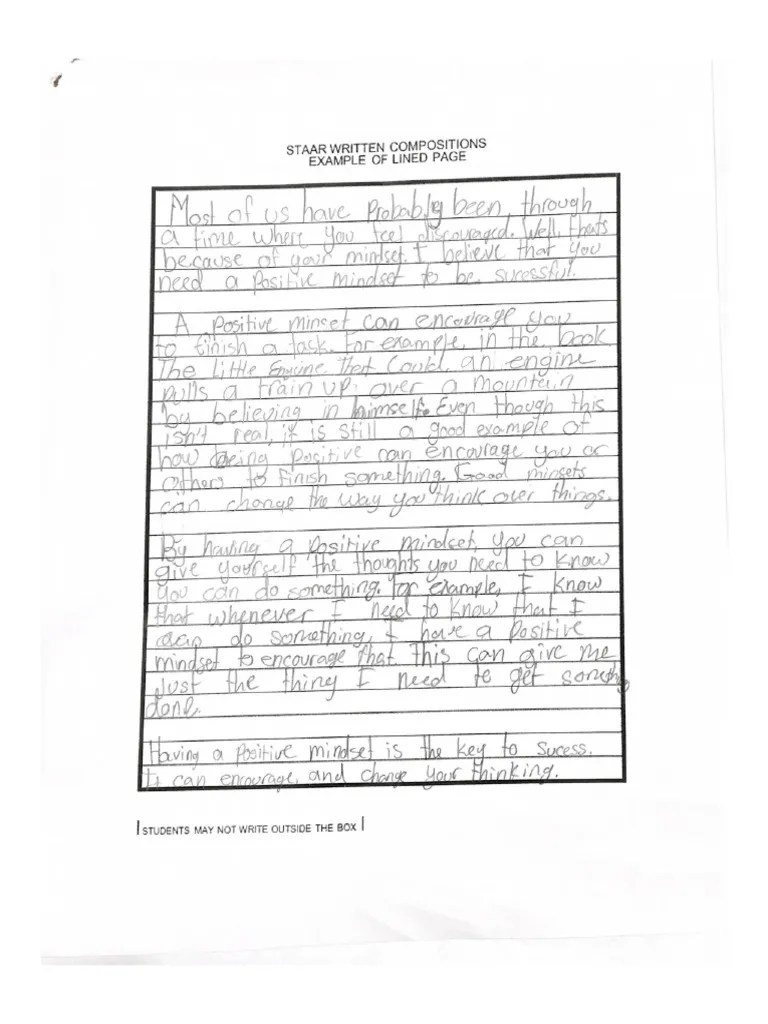 STAAR WRITTEN COMPOSITIONS
EXAMPLE OF LINED PAGE
Most of us have Probably been through
a time where you feel discouraged. Well, thats
because of your mindset. I believe that you
need a Positive mindset to be. sucessful.
A Positive minset can encourage you
to finish a task. For example, in the book
The Little Engine That Could, an engine
pulls a train up over a mountain
by believing in himself. Even though this
isn't real, it is still a good example of
how being Positive can encourage you or
others to finish something. Good minsets
can change the way you think over things.
By having a Positive mindset, you can
give yourself the thoughts you need to know
you can do something. For example, I know
that whenever I need to know that I
can do something, I have a Positive
mindset to encourage that. This can give me
Just the thing I need to get something
done.
Having a Positive mindset is the key to sucess.
It can encourage, and change your thinking.
STUDENTS MAY NOT WRITE OUTSIDE THE BOX